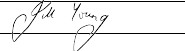 Jill Young